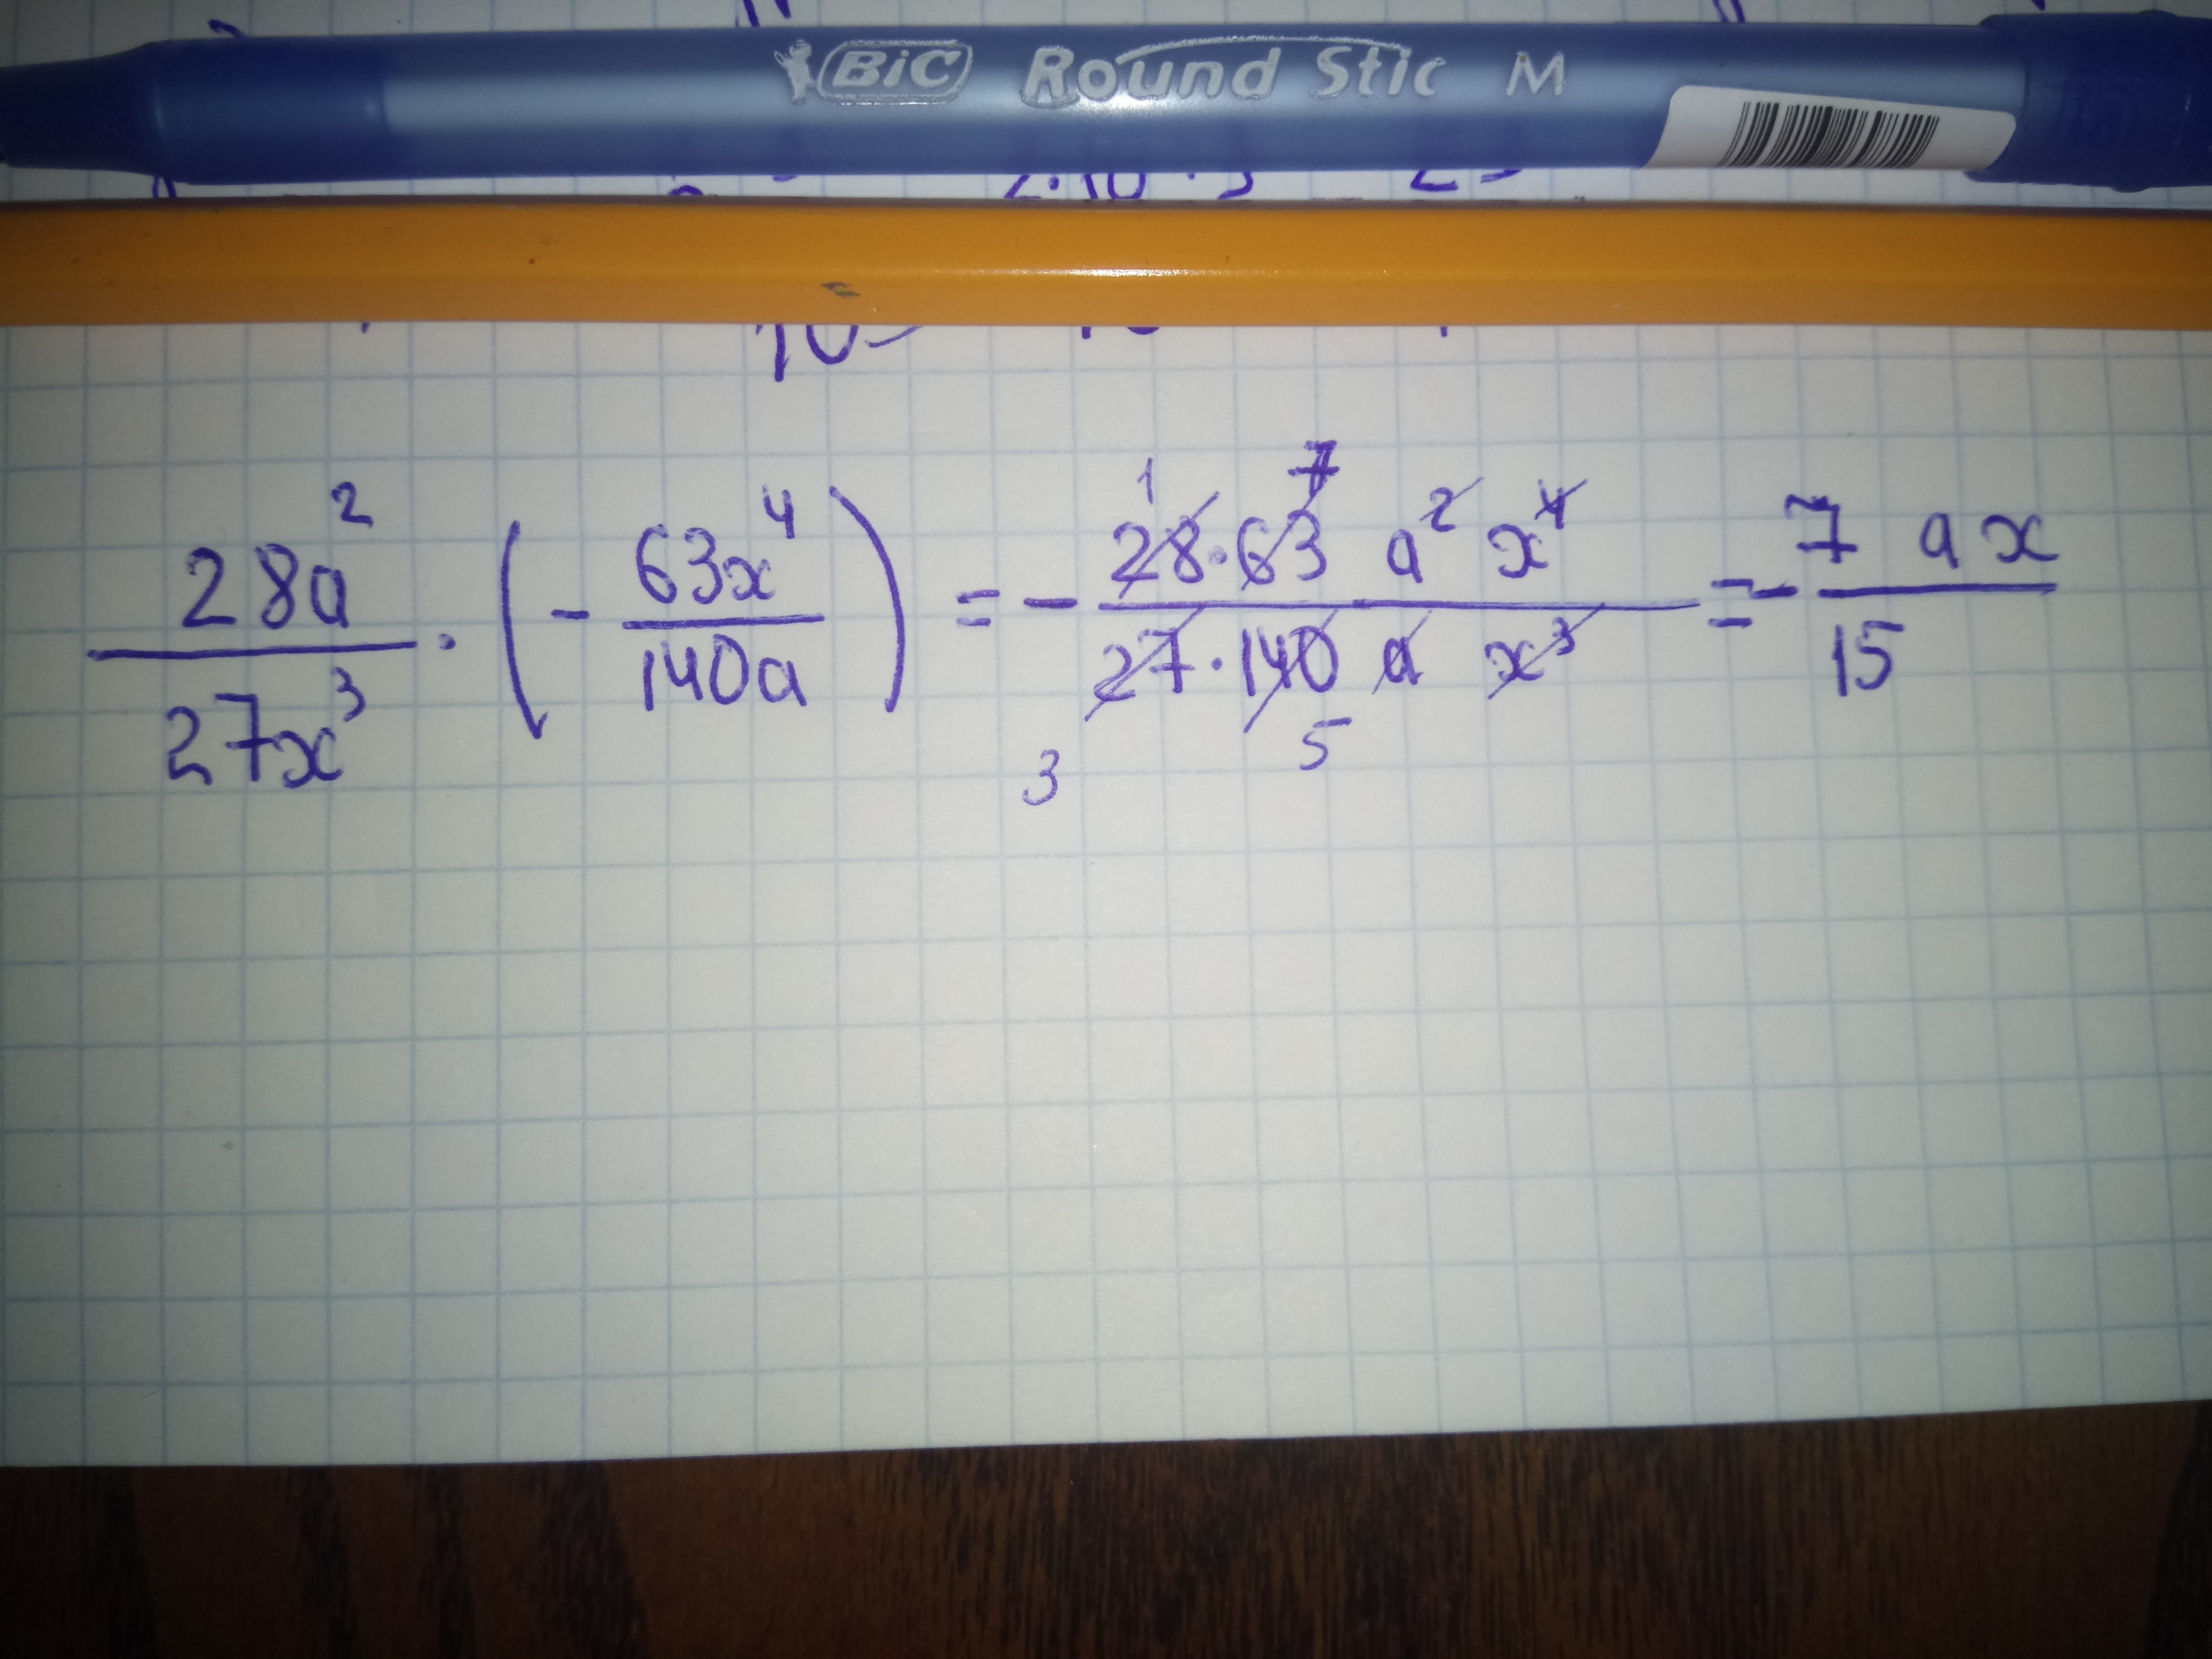 BiC Round Stic M
2·10·5 25
10
28a² / 27x³ · (- 63x⁴ / 140a) = - 28·63 a² x⁴ / 27·140 a x³ = - 7 a x / 15
1 7
3 5